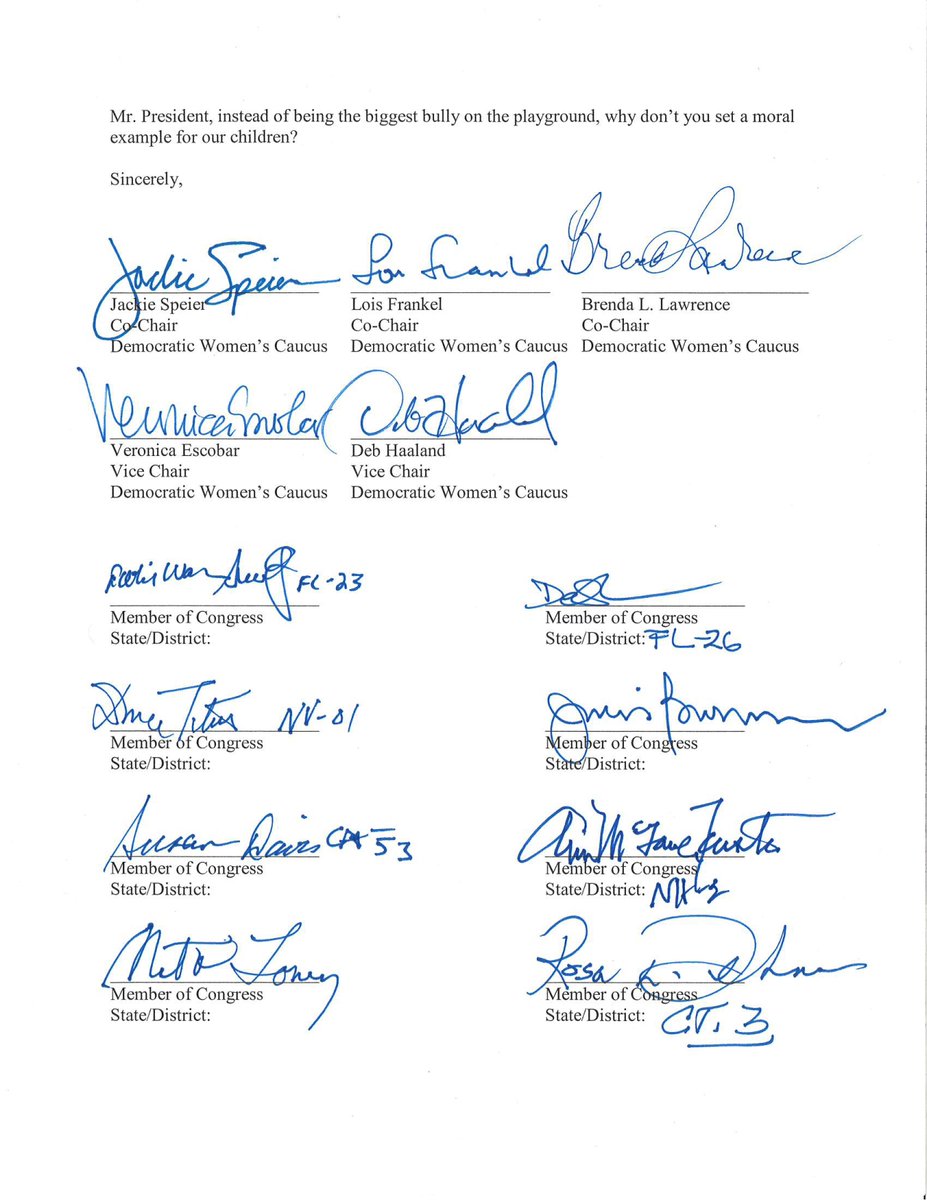 Mr. President, instead of being the biggest bully on the playground, why don’t you set a moral
example for our children?
Sincerely,
Jackie Speier Lois Frankel Brenda Lawrence
Jackie Speier Lois Frankel Brenda L. Lawrence
Co-Chair Co-Chair Co-Chair
Democratic Women’s Caucus Democratic Women’s Caucus Democratic Women’s Caucus
Veronica Escobar Deb Haaland
Veronica Escobar Deb Haaland
Vice Chair Vice Chair
Democratic Women’s Caucus Democratic Women’s Caucus
FL-23
Member of Congress Member of Congress
State/District: State/District: FL-26
Dina Titus NV-01
Member of Congress Member of Congress
State/District: State/District:
Susan Davis CA 53
Member of Congress Member of Congress
State/District: State/District:
Nita Lowey Rosa L. DeLauro
Member of Congress Member of Congress
State/District: State/District: CT. 3